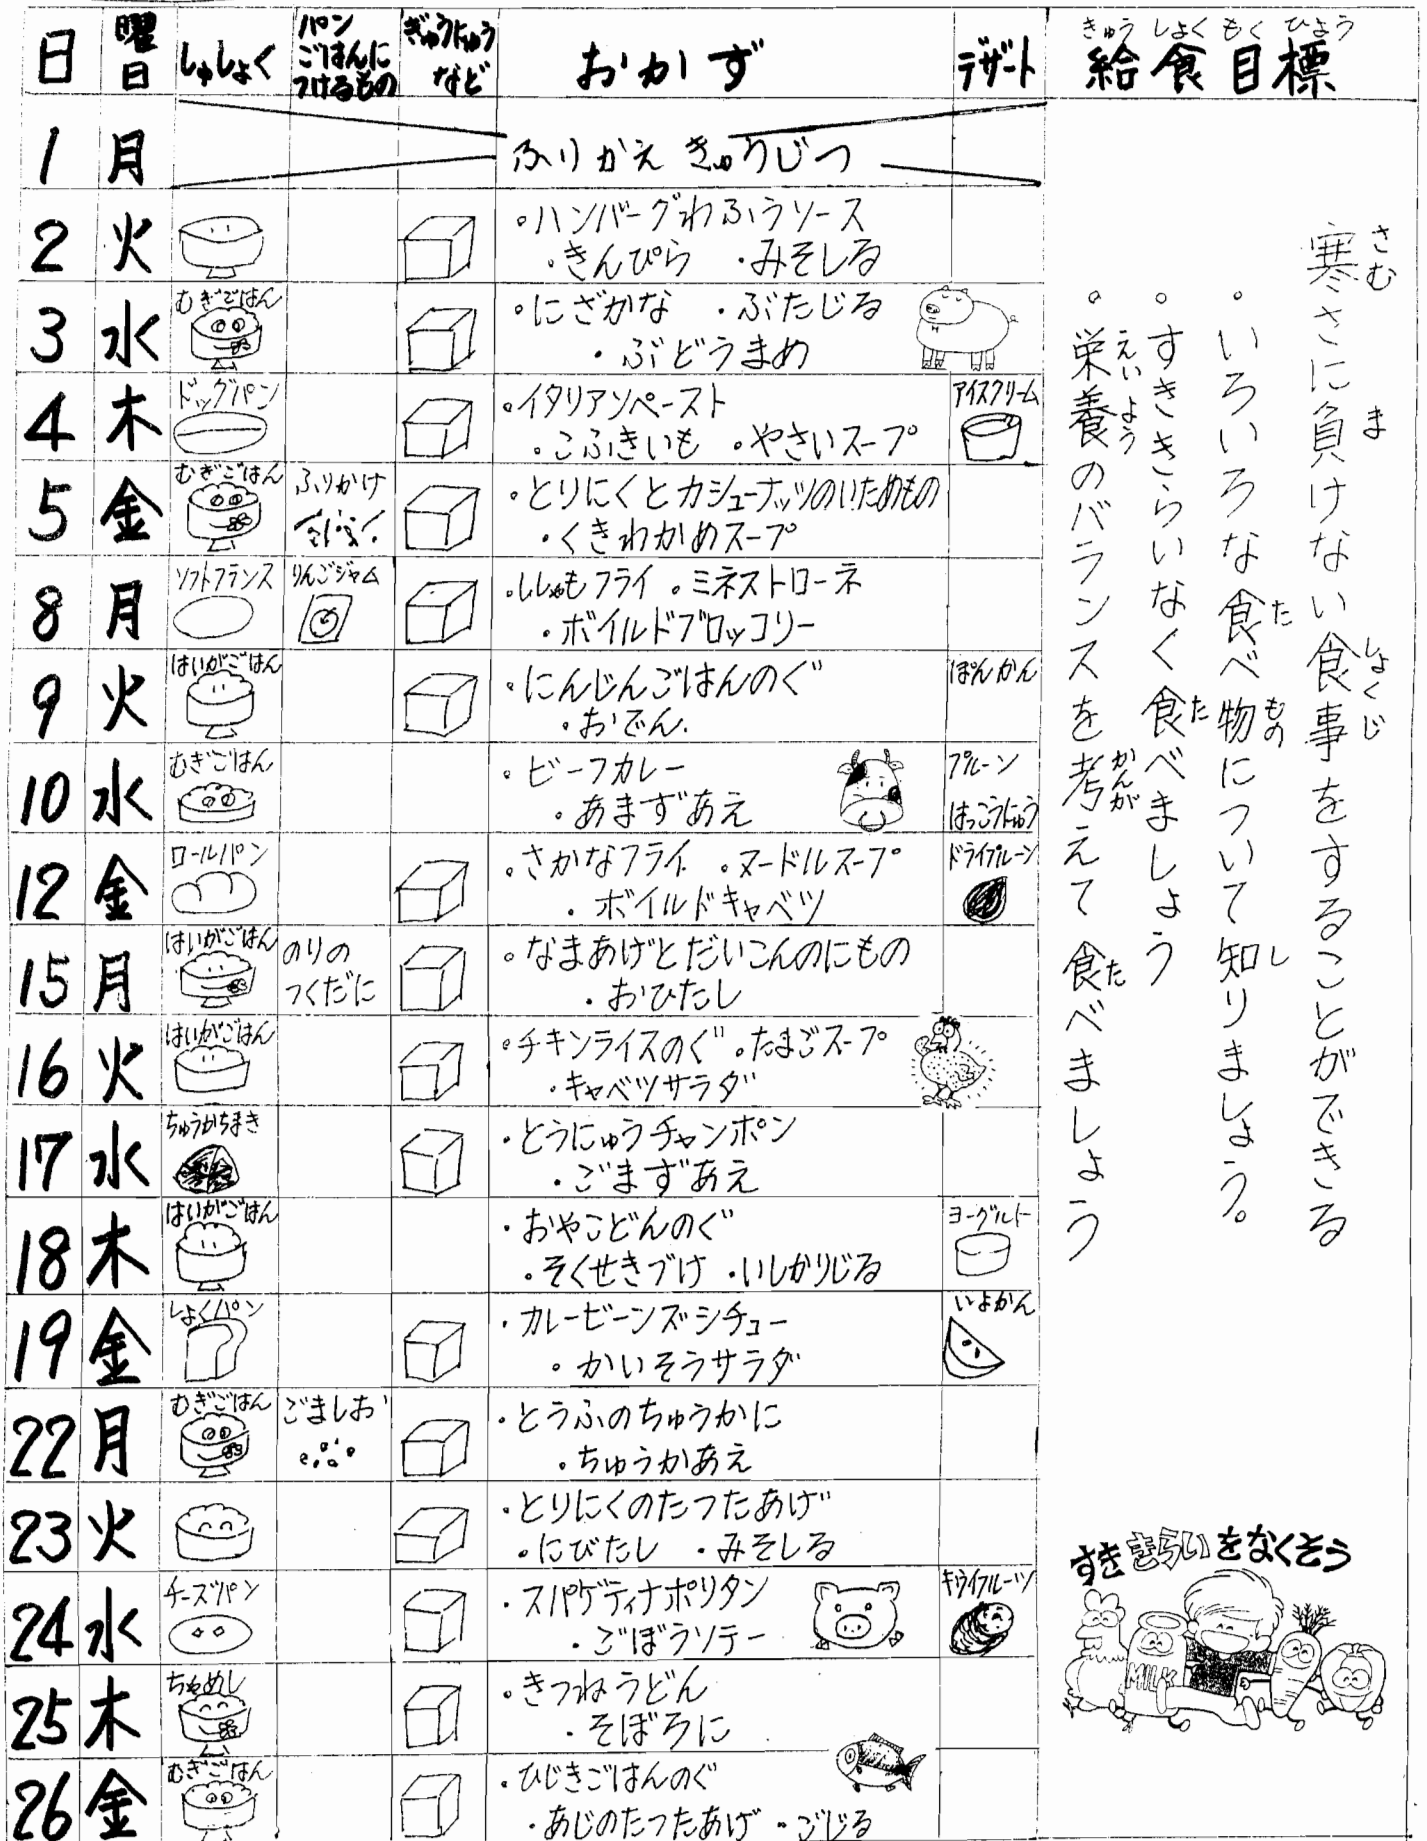 日 曜日 しゅしょく パンごはんにつけるもの ぎゅうにゅうなど おかず デザート
1 月 ふりかえきゅうじつ
2 火 ・ハンバーグわふうソース
・きんぴら ・みそしる
3 水 むぎごはん ・にざかな ・ぶたじる
・ぶどうまめ
4 木 ドッグパン ・イタリアンペースト アイスクリーム
・こふきいも ・やさいスープ
5 金 むぎごはん ふりかけ ・とりにくとカシューナッツのいためもの
・くきわかめスープ
8 月 ソフトフランス りんごジャム ・ししゃもフライ ・ミネストローネ
・ボイルドブロッコリー
9 火 はいがごはん ・にんじんごはんのぐ ぽんかん
・おでん
10 水 むぎごはん ・ビーフカレー プルーン
・あまずあえ はっこうにゅう
12 金 ロールパン ・さかなフライ ・ヌードルスープ ドライプルーン
・ボイルドキャベツ
15 月 はいがごはん のりの ・なまあげとだいこんのにもの
つくだに ・おひたし
16 火 はいがごはん ・チキンライスのぐ ・たまごスープ
・キャベツサラダ
17 水 ちゅうかちまき ・とうにゅうチャンポン
・ごまずあえ
18 木 はいがごはん ・おやこどんのぐ ヨーグルト
・そくせきづけ ・いしかりじる
19 金 しょくパン ・カレービーンズシチュー いよかん
・かいそうサラダ
22 月 むぎごはん ごましお ・とうふのちゅうかに
・ちゅうかあえ
23 火 ・とりにくのたつたあげ
・にびたし ・みそしる
24 水 チーズパン ・スパゲティナポリタン キウイフルーツ
・ごぼうソテー
25 木 ちゃめし ・きつねうどん
・そぼろに
26 金 むぎごはん ・ひじきごはんのぐ
・あじのたつたあげ ・ごじる
きゅうしょくもくひょう
給食目標
さむ ま しょくじ
寒さに負けない食事をすることができる
た もの し
・いろいろな食べ物について知りましょう。
た
・すききらいなく食べましょう
えいよう かんが た
・栄養のバランスを考えて食べましょう
すききらいをなくそう
MILK